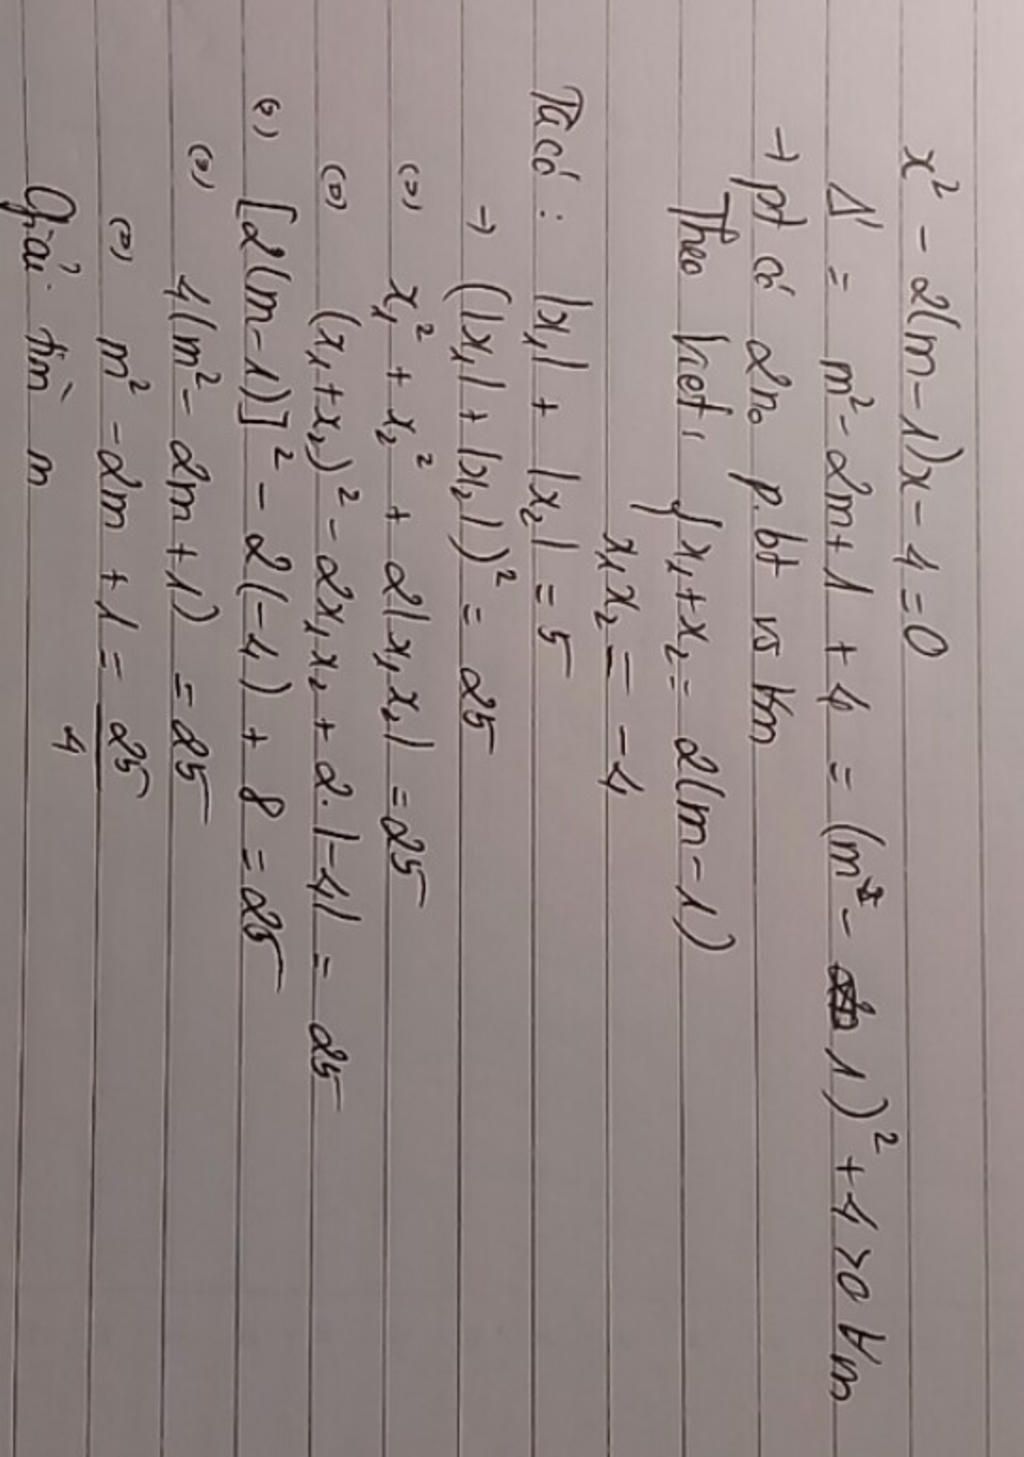 x² - 2(m-1)x - 4 = 0
Δ' = m² - 2m + 1 + 4 = (m - 1)² + 4 > 0 ∀m
→ pt có 2no p.bt vs ∀m
Theo Viet, { x₁ + x₂ = 2(m-1)
x₁x₂ = -4
Ta có : |x₁| + |x₂| = 5
→ (|x₁| + |x₂|)² = 25
(=) x₁² + x₂² + 2|x₁x₂| = 25
(=) (x₁+x₂)² - 2x₁x₂ + 2.|-4| = 25
(=) [2(m-1)]² - 2(-4) + 8 = 25
(=) 4(m² - 2m + 1) = 25
(=) m² - 2m + 1 = 25/4
Giải tìm m